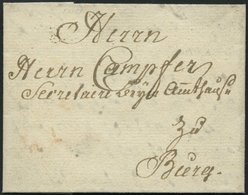 Herrn
Herrn Campfer
Secretair beÿm Amthause
Zu
Burg.